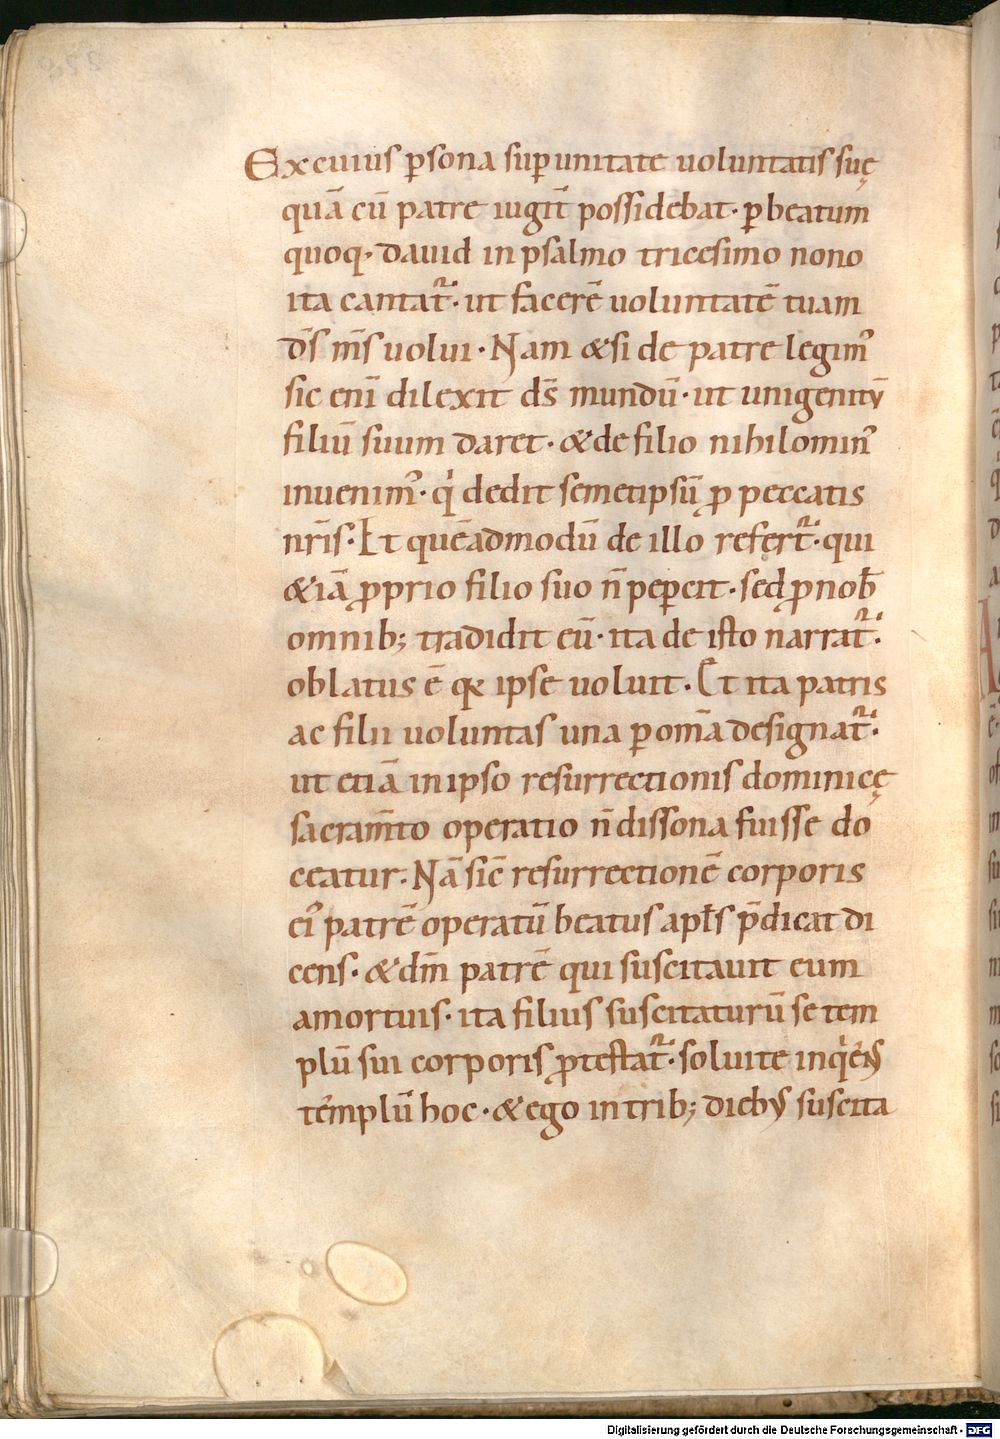 Ex cuius ꝑsona suꝑ unitate uoluntatis suę
quā cū patre iugit̄ possidebat· ꝑ beatum
quoq· dauid in psalmo tricesimo nono
ita cantat᷑· ut facerē uoluntatē tuam
ds̄ ms̄ uolui· Nam &si de patre legimꝰ
sic enī dilexit ds̄ mundū· ut unigenitū
filiū suum daret· & de filio nihilominꝰ
inuenimꝰ· qͥ dedit semetipsū ꝓ peccatis
nr̄is· Et quēadmodū de illo refert᷑· qui
&iā ꝓprio filio suo n̄ peꝑcit· sed ꝓ nob̄
omnib; tradidit eū· ita de isto narrat᷑·
oblatus ē qꝛ ipse uoluit· Et ita patris
ac filii uoluntas una ꝑ om̄a designat᷑·
ut etiā in ipso resurrectionis dominicę
sacram̄to operatio n̄ dissona fuisse do
ceatur· Nā sic̄ resurrectionē corporis
eiꝰ patrē operatū beatus apl̄s p̄dicat di
cens· & dm̄ patrē qui suscitauit eum
a mortuis· ita filius suscitaturū se tem
plū sui corporis ꝓtestat᷑· soluite inqͥens
templū hoc· & ego in trib; diebus suscita
Digitalisierung gefördert durch die Deutsche Forschungsgemeinschaft - DFG